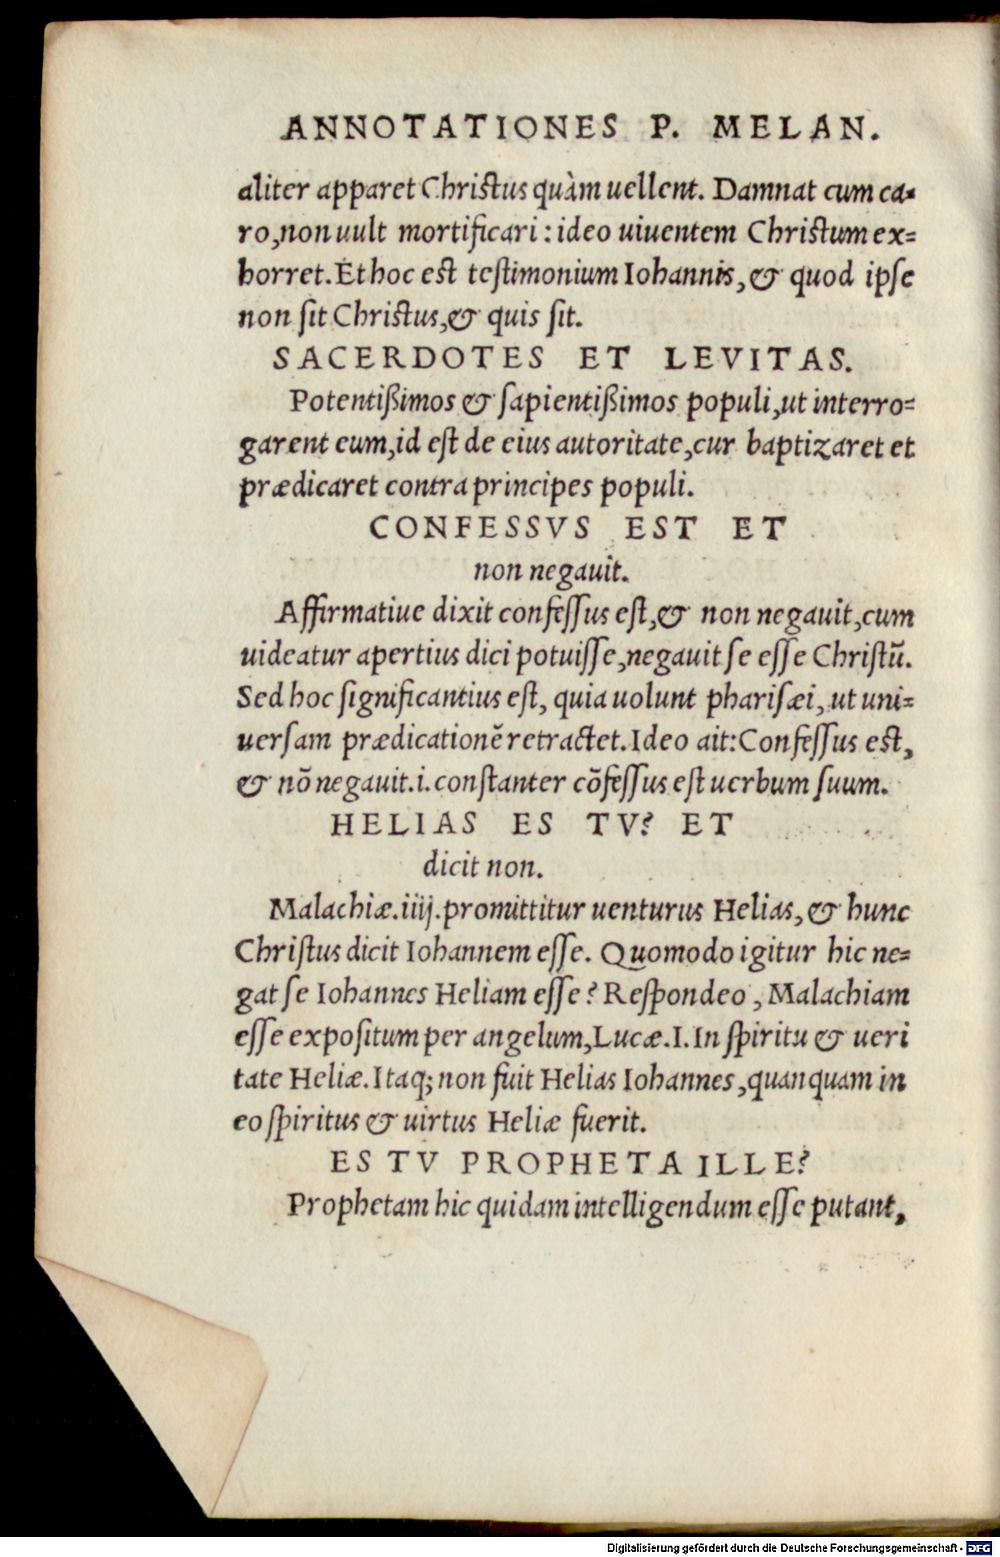 ANNOTATIONES P. MELAN.
aliter apparet Christus quàm uellent. Damnat eum ca=
ro, non uult mortificari: ideo uiuentem Christum ex=
horret. Et hoc est testimonium Iohannis, & quod ipse
non sit Christus, & quis sit.
SACERDOTES ET LEVITAS.
Potentißimos & sapientißimos populi, ut interro=
garent eum, id est de eius autoritate, cur baptizaret et
prædicaret contra principes populi.
CONFESSVS EST ET
non negauit.
Affirmatiue dixit confessus est, & non negauit, cum
uideatur apertius dici potuisse, negauit se esse Christũ.
Sed hoc significantius est, quia uolunt pharisæi, ut uni=
uersam prædicationẽ retractet. Ideo ait: Confessus est,
& nõ negauit. i. constanter cõfessus est uerbum suum.
HELIAS ES TV? ET
dicit non.
Malachiæ. iiij. promittitur uenturus Helias, & hunc
Christus dicit Iohannem esse. Quomodo igitur hic ne=
gat se Iohannes Heliam esse? Respondeo, Malachiam
esse expositum per angelum, Lucæ. I. In spiritu & ueri
tate Heliæ. Itaq; non fuit Helias Iohannes, quanquam in
eo spiritus & uirtus Heliæ fuerit.
ES TV PROPHETA ILLE?
Prophetam hic quidam intelligendum esse putant,
Digitalisierung gefördert durch die Deutsche Forschungsgemeinschaft - DFG